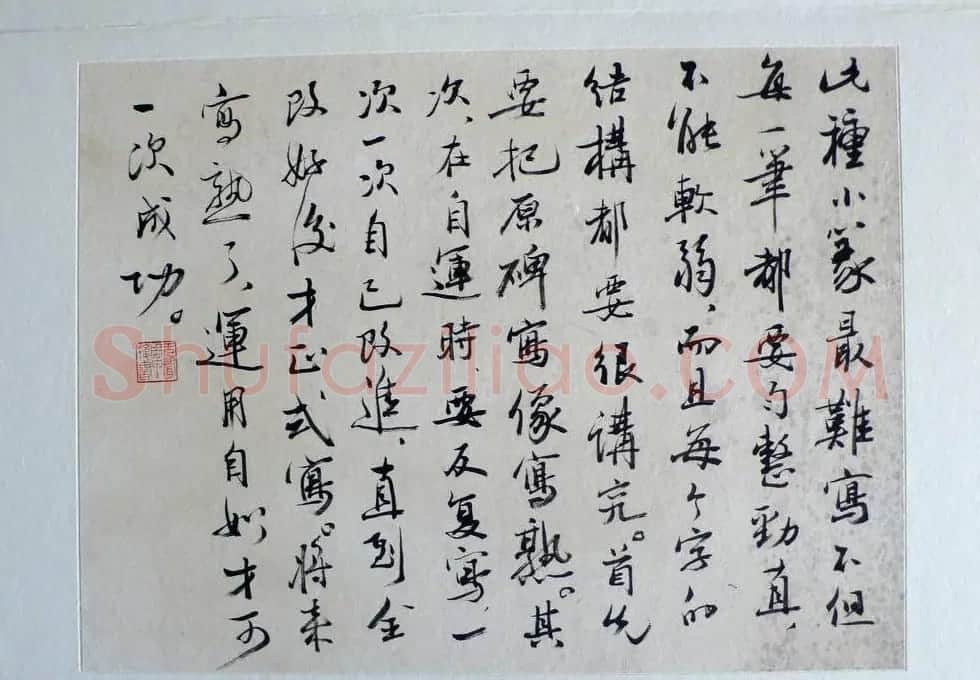 此種小篆最難寫不但
每一筆都要勻整勁直、
不能軟弱、而且每个字的
结構都要很講究。首先
要把原碑寫像寫熟。其
次、在自運時要反复寫、一
次一次自己改進、直到全
改好後才正式寫。將来
寫熟了、運用自如才可
一次成功。
Shufaziliao.COM